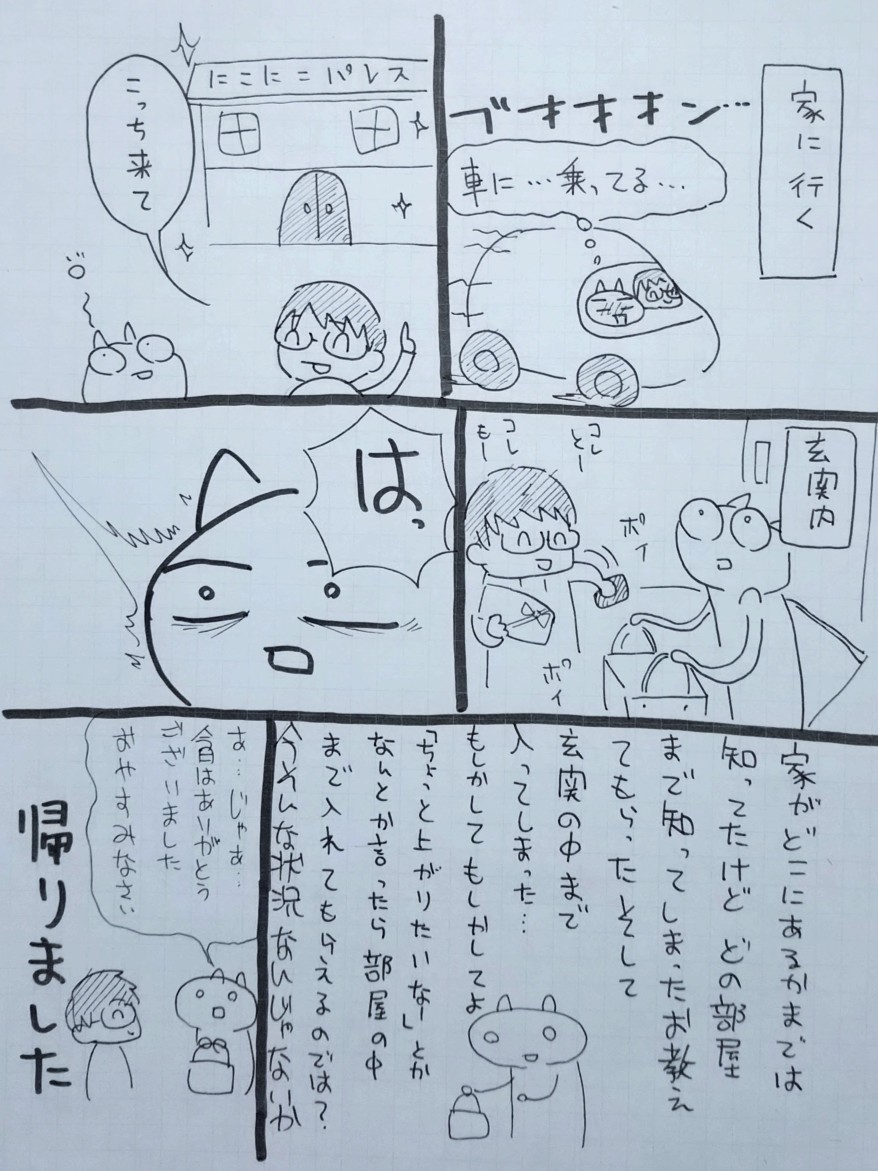 家に行く
ブオオオオン…
車に…乗ってる…
にこにこパレス
こっち来て
玄関内
コレとー
コレもー
ポイ
ポイ
はっ
家がどこにあるかまでは
知ってたけど どの部屋
まで知ってしまったお教え
てもらったそして
玄関の中まで
入ってしまった…
もしかしてもしかしてよ
「ちょっと上がりたいなー」とか
なんとか言ったら部屋の中
まで入れてもらえるのでは?
今そんな状況なんじゃないか
あ…じゃあ…
今日はありがとう
ございました
おやすみなさい
帰りました